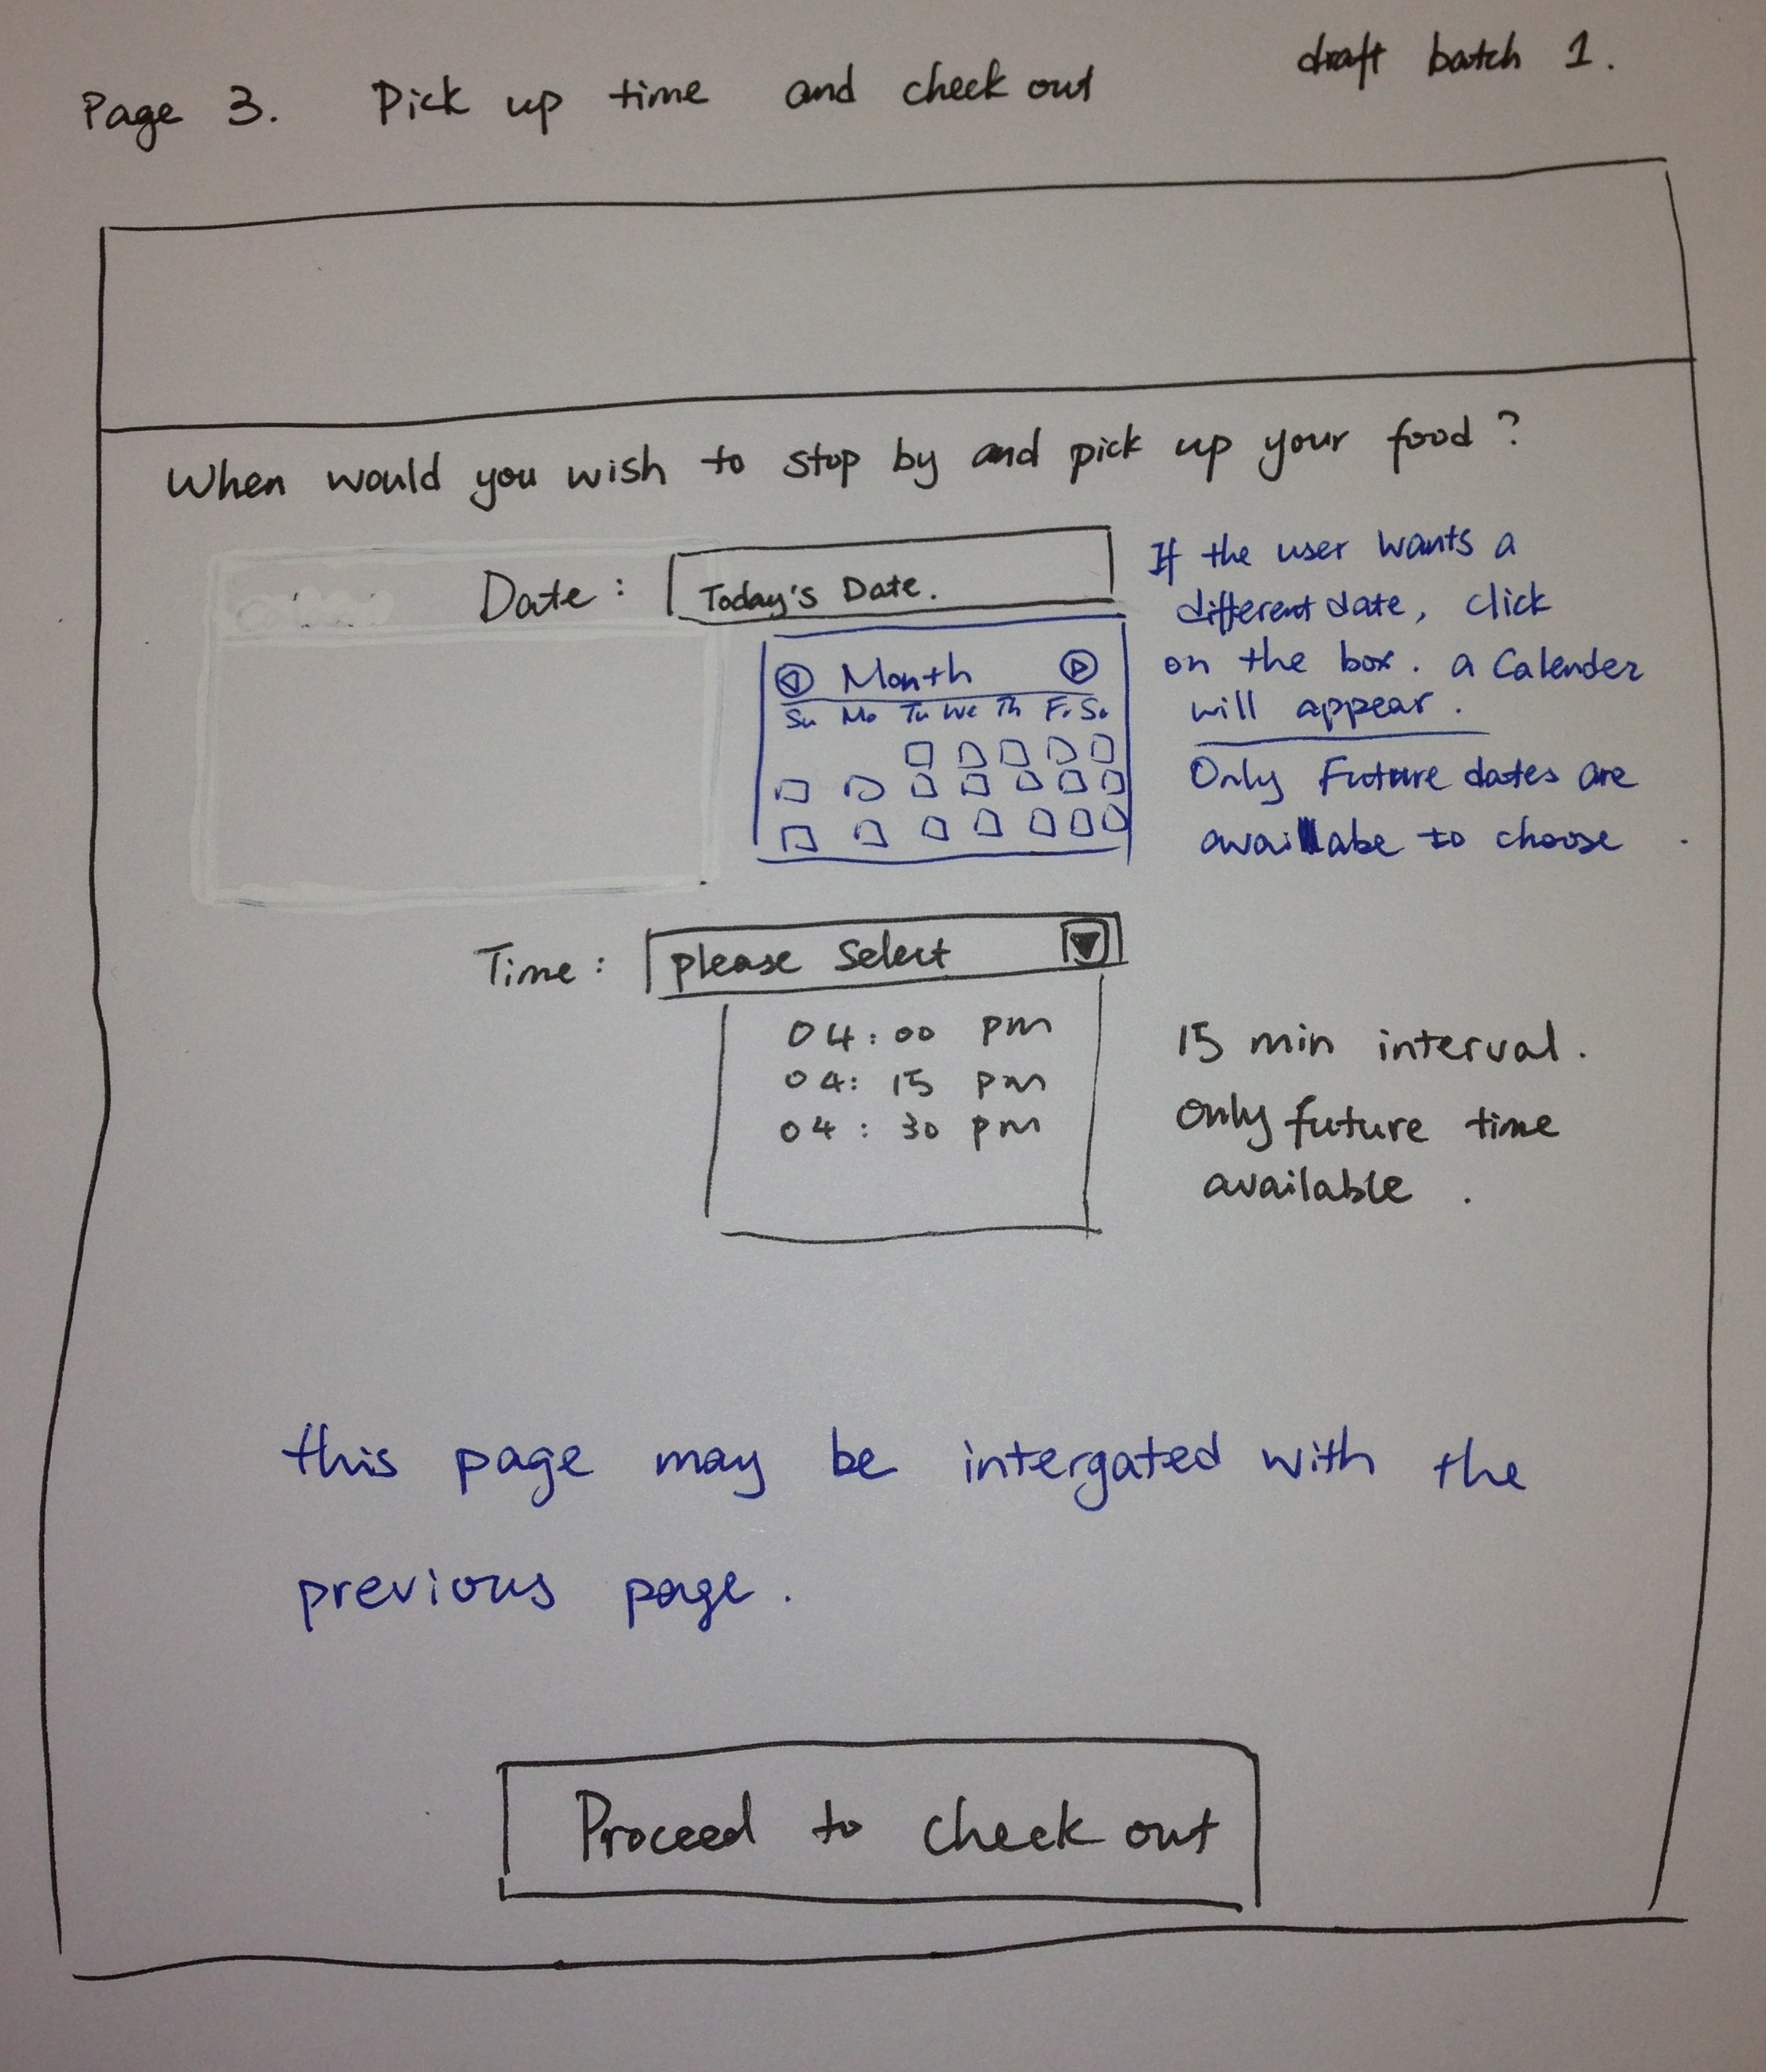 Page 3. Pick up time and check out
draft batch 1.
When would you wish to stop by and pick up your food?
Date: Today's Date.
If the user wants a
different date, click
on the box. a Calender
will appear.
Only Future dates are
availlabe to choose.
Month
Su Mo Tu We Th Fr Sa
Time: please Select
04:00 pm
04:15 pm
04:30 pm
15 min interval.
Only future time
available.
this page may be intergated with the
previous page.
Proceed to check out